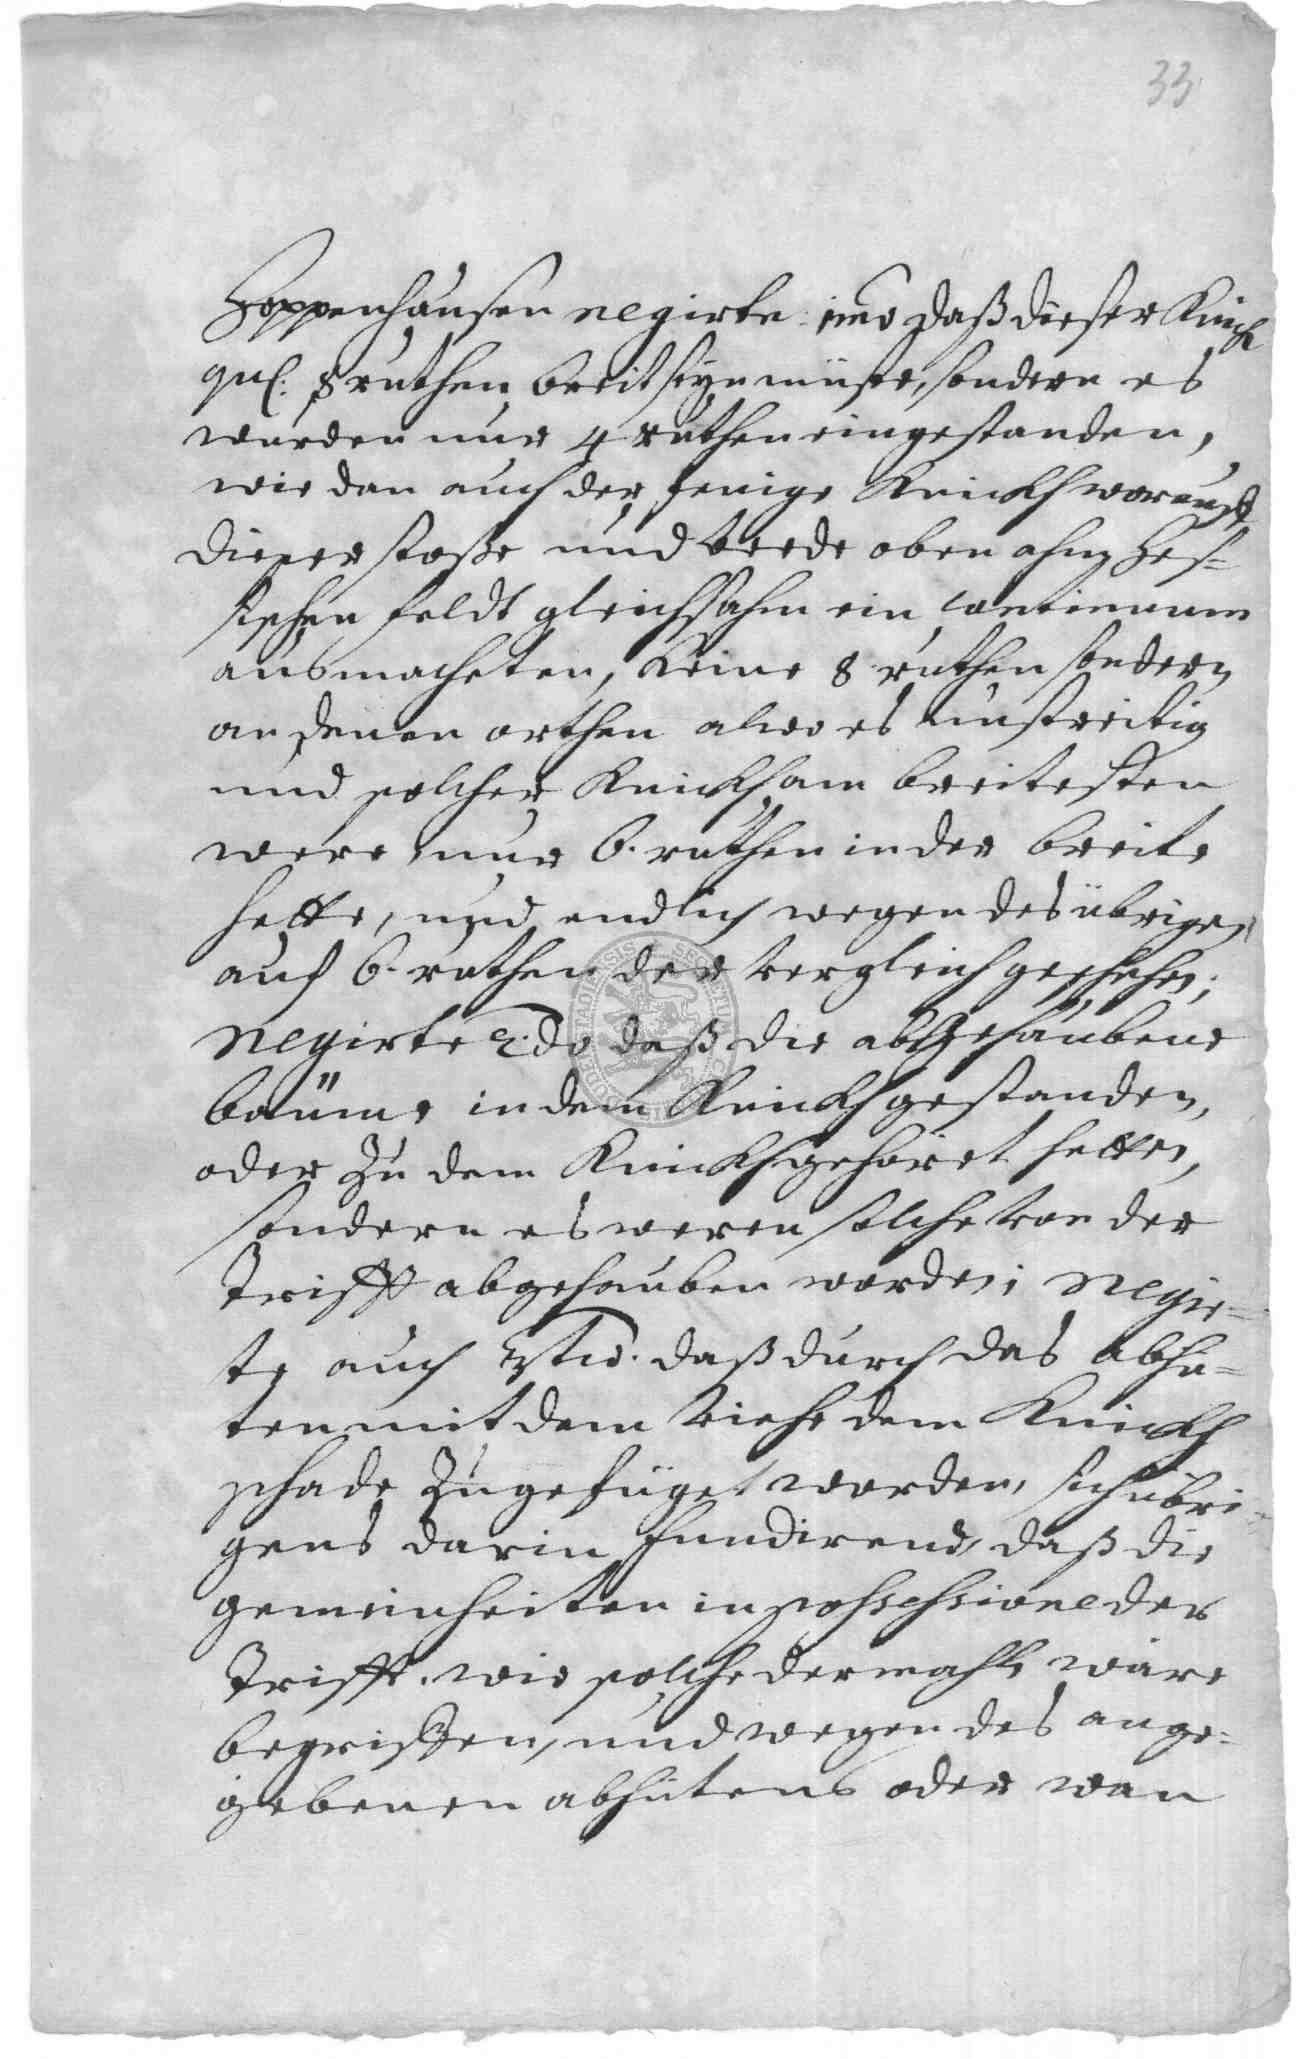 33
Hoppenhausen negirte: imo daß dieser Knick
qus. 8 ruthen breit seyn müste, sondern es
wurden nur 4 ruthen eingestanden,
wie dan auch der jenige Knickh worauff
dieser stoße und beede oben ahm Hes=
sischen feldt gleichsahm ein continuum
ausmacheten, keine 8 ruthen sondern
an denen orthen alwo es unstreitig
und solcher Knickh am breitesten
were nur 6. ruthen in der breite
hette, und endlich wegen des übrigen
auf 6. ruthen der vergleich geschehen;
Negirte 2.do daß die abgehaubene
baüme in dem Knickh gestanden,
oder zu dem Knickh gehöret hetten,
sondern es weren solche von der
Trifft abgehauben worden; Negir=
te auch 3tio. daß durch das abhü=
ten mit dem viehe dem Knickh
schade zugefüget worden, sich übri=
gens darin fundirend, daß die
gemeinheiten in possessione der
Trifft. wie solche dermahls wäre
begriffen, und wegen des ange=
gebenen abhütens oder wan